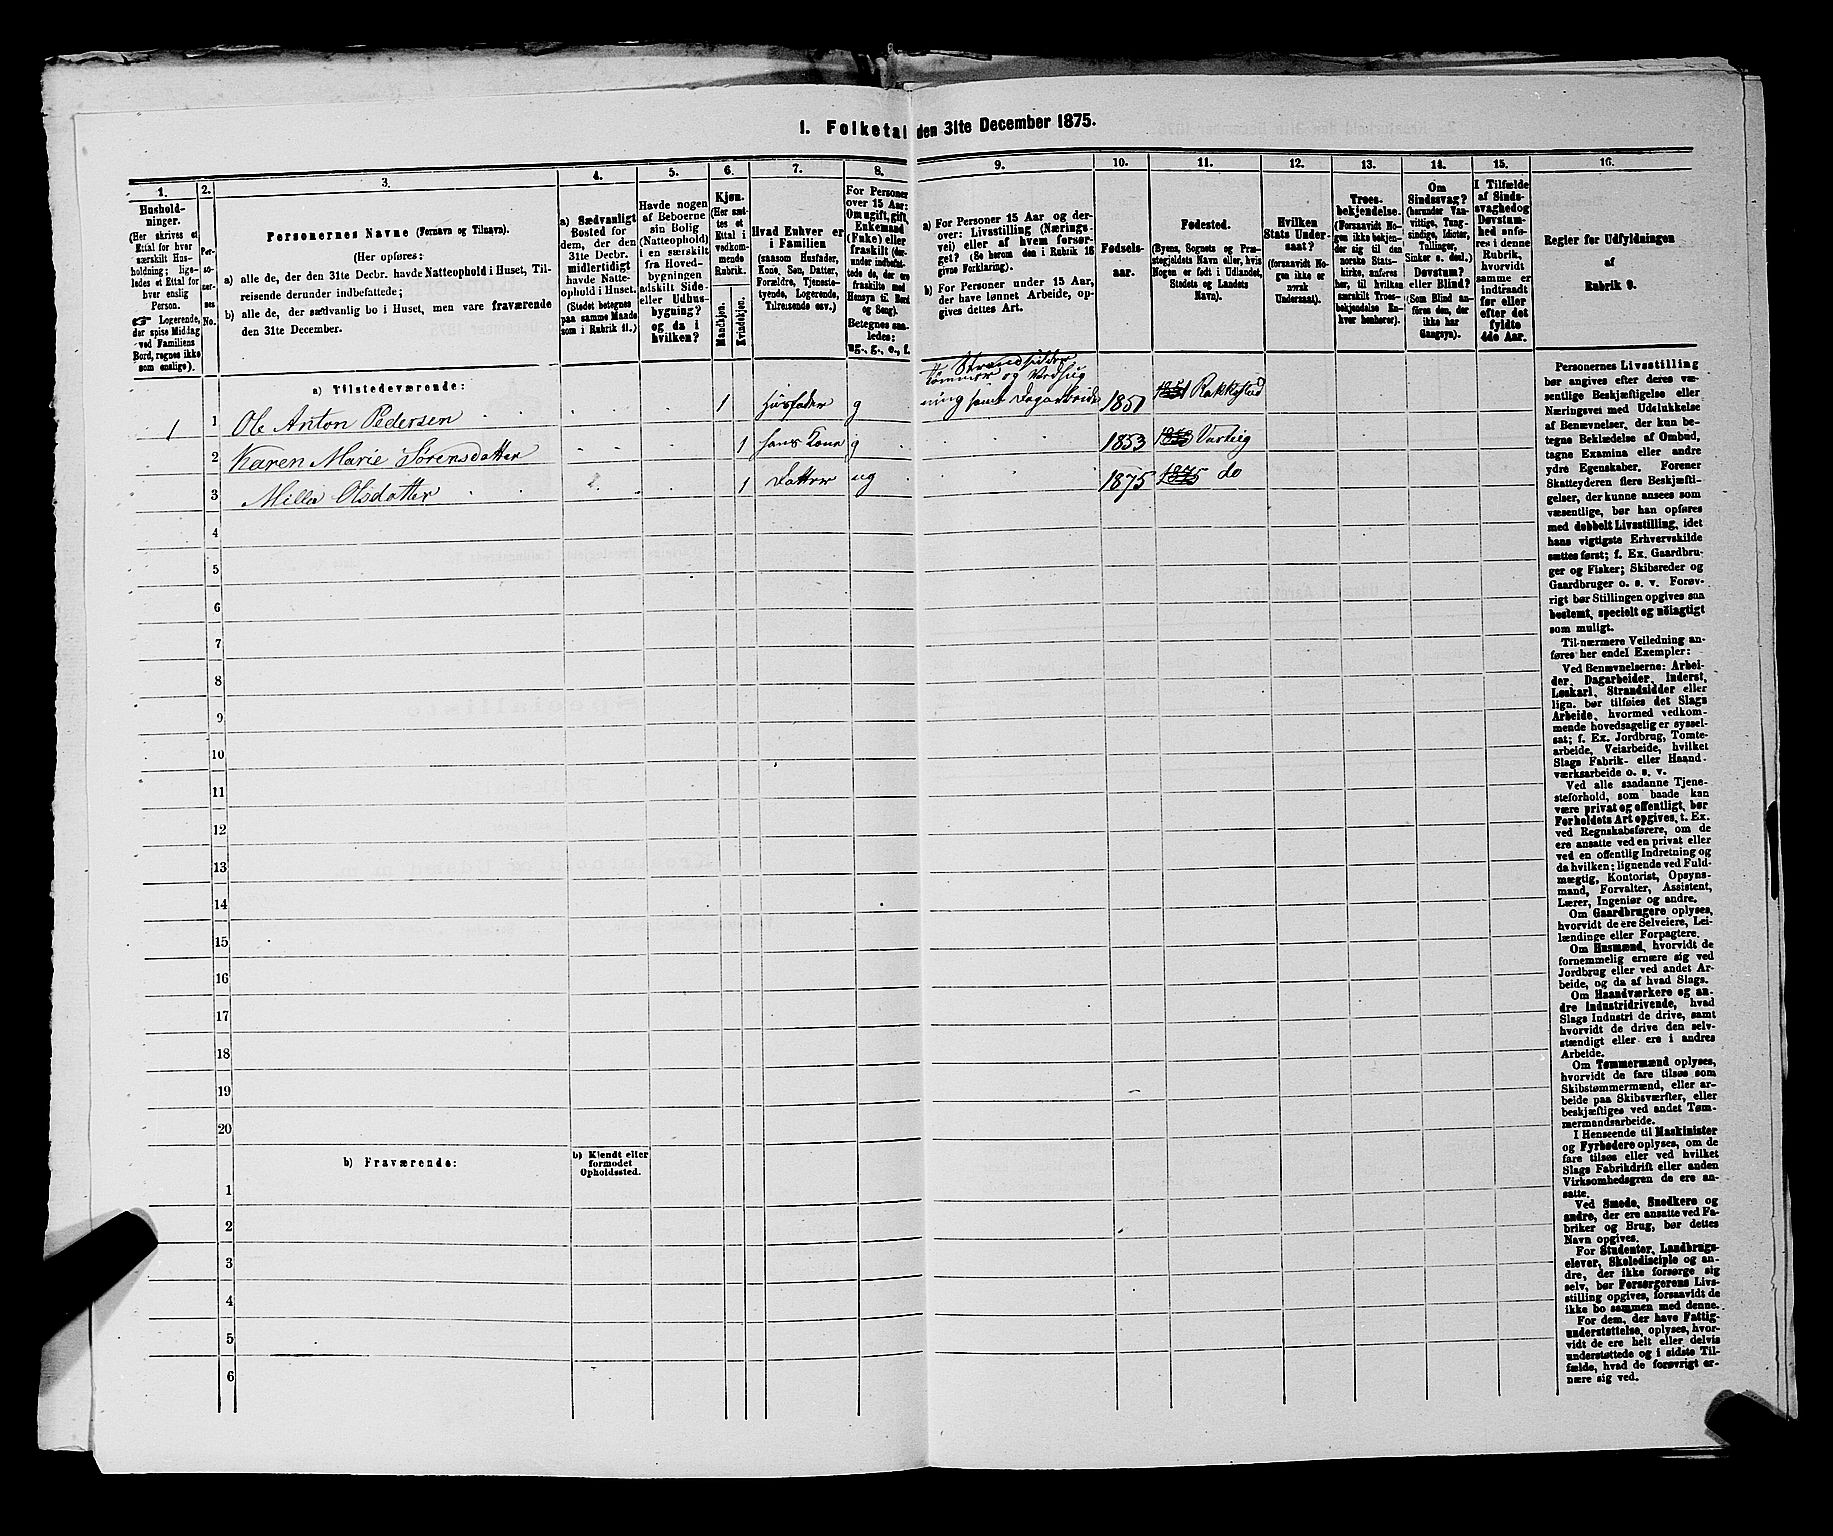 1. Folketal den 31te December 1875.
1.
Hushold-
ninger.
(Her skrives et
Ettal for hver
særskilt Hus-
holdning; lige-
ledes et Ettal for
hver enslig
Person.
☞ Logerende,
der spise Middag
ved Familiens
Bord, regnes ikke
som enslige).
2.
Per-
so-
ner-
nes
No.
3.
Personernes Navne (Fornavn og Tilnavn).
(Her opføres:
a) alle de, der den 31te Decbr. havde Natteophold i Huset, Til-
reisende derunder indbefattede;
b) alle de, der sædvanlig bo i Huset, men vare fraværende
den 31te December.
4.
a) Sædvanligt
Bosted for
dem, der den
31te Decbr.
midlertidigt
havde Natte-
ophold i Huset.
(Stedet betegnes
paa samme Maade
som i Rubrik 11.)
5.
Havde nogen
af Beboerne
sin Bolig
(Natteophold)
i en særskilt
fra Hoved-
bygningen
adskilt Side-
eller Udhus-
bygning?
og da i
hvilken?
6.
Kjøn.
(Her sæt-
tes et
Ettal i
vedkom-
mende
Rubrik.
Mandkjøn.
Kvindekjøn.
7.
Hvad Enhver er
i Familien
(saasom Husfader,
Kone, Søn, Datter,
Forældre, Tjeneste-
tyende, Logerende,
Tilreisende osv.)
8.
For Personer
over 15 Aar:
Om ugift, gift,
Enkemand
(Enke) eller
fraskilt (der-
under indbefat-
tede de, der ere
fraskilte med
Hensyn til Bord
og Seng).
Betegnes saa-
ledes:
ug., g., e., f.
9.
a) For Personer 15 Aar og der-
over: Livsstilling (Nærings-
vei) eller af hvem forsør-
get? (Se herom den i Rubrik 16
givne Forklaring).
b) For Personer under 15 Aar,
der have lønnet Arbeide, op-
gives dettes Art.
10.
Fødsels-
aar.
11.
Fødested.
(Byens, Sognets og Præ-
stegjeldets Navn eller, hvis
Nogen er født i Udlandet,
Stedets og Landets
Navn).
12.
Hvilken
Stats Under-
saat?
(forsaavidt No-
gen ikke er
norsk
Undersaat).
13.
Troes-
bekjendelse.
(Forsaavidt No-
gen ikke bekjen-
der sig til den
norske Stats-
kirke, anføres
her, til hvilken
særskilt Troes-
bekjendelse En-
hver henhører).
14.
Om
Sindssvag?
(herunder Van-
vittige, Tung-
sindige, Idioter,
Tullinger,
Sinker o. desl.)
Døvstum?
eller Blind?
(Som Blind an-
føres den, der
ikke har
Gangsyn).
15.
I Tilfælde
af Sinds-
svaghed og
Døvstum-
hed anfø-
res i denne
Rubrik,
hvorvidt
samme er
indtraadt
før eller
efter det
fyldte
4de Aar.
16.
Regler for Udfyldningen
af
Rubrik 9.
a) Tilstedeværende:
1 1 Ole Anton Pedersen 1 Husfader g Strandsidder
Tømmer og Vedhug
ning samt Dagarbeide 1851 1851 Rakkestad
2 Karen Marie Sørensdatter 1 hans Kone g 1853 1853 Varteig
3 Milla Olsdatter 1 Datter ug 1875 1875 do
4
5
6
7
8
9
10
11
12
13
14
15
16
17
18
19
20
b) Fraværende:
b) Kjendt eller
formodet
Opholdssted.
1
2
3
4
5
6
Personernes Livsstilling
bør angives efter deres væ-
sentlige Beskjæftigelse eller
Næringsvei med Udelukkelse
af Benævnelser, der kun be-
tegne Beklædelse af Ombud,
tagne Examina eller andre
ydre Egenskaber. Forener
Skatteyderen flere Beskjæfti-
gelser, der kunne ansees som
væsentlige, bør han opføres
med dobbelt Livsstilling, idet
hans vigtigste Erhvervskilde
sættes først; f. Ex. Gaardbru-
ger og Fisker; Skibsreder og
Gaardbruger o. s. v. Forøv-
rigt bør Stillingen opgives saa
bestemt, specielt og nöiagtigt
som muligt.
Til nærmere Veiledning an-
føres her endel Exempler:
Ved Benævnelserne: Arbei-
der, Dagarbeider, Inderst,
Løskarl, Strandsidder eller
lign. bør tilføies det Slags
Arbeide, hvormed vedkom-
mende hovedsagelig er syssel-
sat; f. Ex. Jordbrug, Tomte-
arbeide, Veiarbeide, hvilket
Slags Fabrik- eller Haand-
værksarbeide o. s. v.
Ved alle saadanne Tjene-
steforhold, som baade kan
være privat og offentligt, bør
Forholdets Art opgives, t. Ex.
ved Regnskabsførere, om de
ere ansatte ved en privat eller
ved en offentlig Indretning og
da hvilken; lignende ved Fuld-
mægtig, Kontorist, Opsyns-
mand, Forvalter, Assistent,
Lærer, Ingeniør og andre.
Om Gaardbrugere oplyses,
hvorvidt de ere Selveiere, Lei-
lændinge eller Forpagtere.
Om Husmænd, hvorvidt de
fornemmelig ernære sig ved
Jordbrug eller ved andet Ar-
beide, og da af hvad Slags.
Om Haandværkere og an-
dre Industridrivende, hvad
Slags Industri de drive, samt
hvorvidt de drive den selv-
stændigt eller ere i andres
Arbeide.
Om Tømmermænd oplyses,
hvorvidt de fare tilsøs som
Skibstømmermænd, eller ar-
beide paa Skibsværfter, eller
beskjæftiges ved andet Tøm-
mermandsarbeide.
I Henseende til Maskinister
og Fyrbødere oplyses, om de
fare tilsøs eller ved hvilket
Slags Fabrikdrift eller anden
Virksomhedsgren de ere an-
satte.
Ved Smede, Snedkere og
andre, der ere ansatte ved Fa-
briker og Brug, bør dettes
Navn opgives.
For Studenter, Landbrugs-
elever, Skoledisciple og an-
dre, der ikke forsørge sig
selv, bør Forsørgerens Livs-
stilling opgives, forsaavidt de
ikke bo sammen med denne.
For dem, der have Fattig-
understøttelse, oplyses, hvor-
vidt de ere helt eller delvis
understøttede og i sidste Til-
fælde, hvad de forøvrigt er-
nære sig ved.